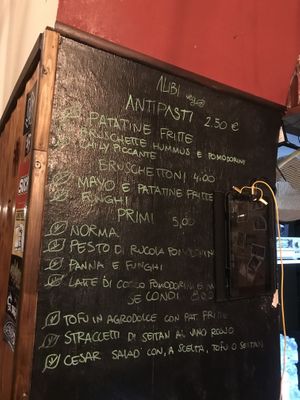 ALIBI veg
ANTIPASTI 2.50 €
PATATINE FRITTE
BRUSCHETTE HUMMUS E POMODORINI
CHILY PICCANTE
BRUSCHETTONI 4.00
MAYO E PATATINE FRITTE
FUNGHI
PRIMI 5,00
NORMA
PESTO DI RUCOLA POMODORINI
PANNA E FUNGHI
LATTE DI COCCO POMODORINI E
SECONDI 8.00
TOFU IN AGRODOLCE CON PAT FRITTE
STRACCETTI DI SEITAN AL VINO ROSSO
CESAR SALAD CON, A SCELTA, TOFU O SEITAN